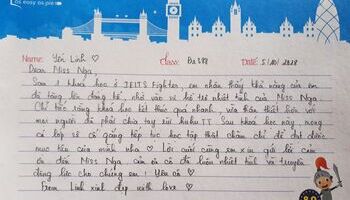 as easy as pie
Name: Yến Linh ♡ Class: Be 388 Date: 5/10/2018
Dear Miss Nga,
Sau 1 khoá học ở IELTS Fighter, em nhận thấy khả năng của em
đã tăng lên đáng kể, nhờ vào sự hỗ trợ nhiệt tình của Miss Nga.
Chỉ tiếc rằng khoá học kết thúc quá nhanh, vừa thân thiết hơn với
mọi người đã phải chia tay rồi huhu TT. Sau khoá học này, mong
cả lớp sẽ cố gắng tiếp tục học tập thật chăm chỉ để đạt được
mục tiêu của mình nha ♡ Lời cuối cùng em xin gửi lời cảm
ơn đến Miss Nga cảm ơn cô đã luôn nhiệt tình và truyền
động lực cho chúng em! Yêu cô ♡
From Linh xinh đẹp with love ♡